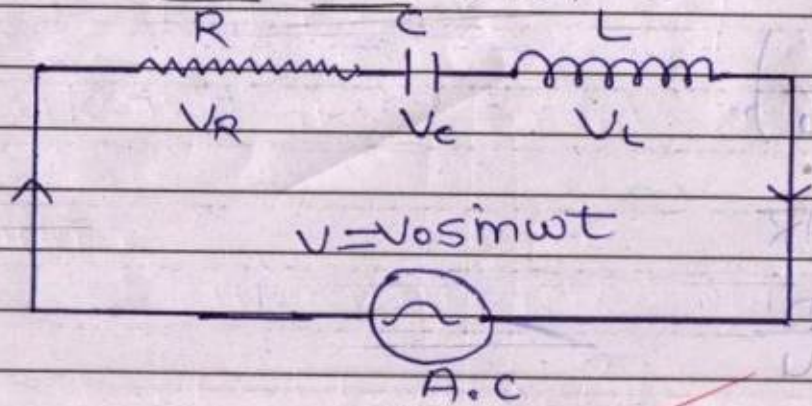 R C L
VR Vc VL
V=V0sinwt
A.C